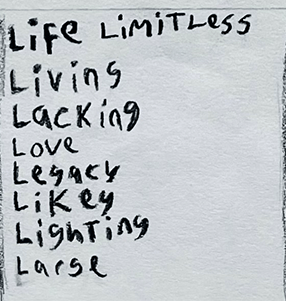 Life Limitless
Living
Lacking
Love
Legacy
Likey
Lighting
Large